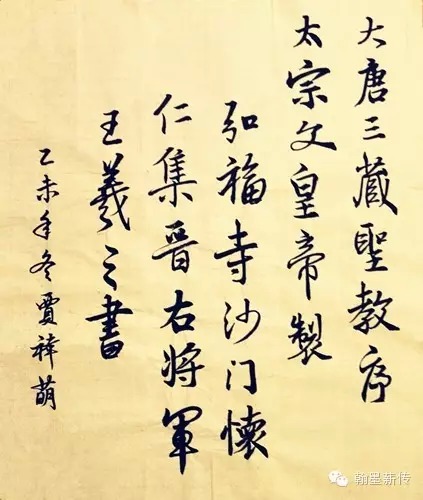 大唐三藏聖教序
太宗文皇帝製
弘福寺沙门懷
仁集晉右将軍
王羲之書
乙未年冬賈禕萌
翰墨薪传